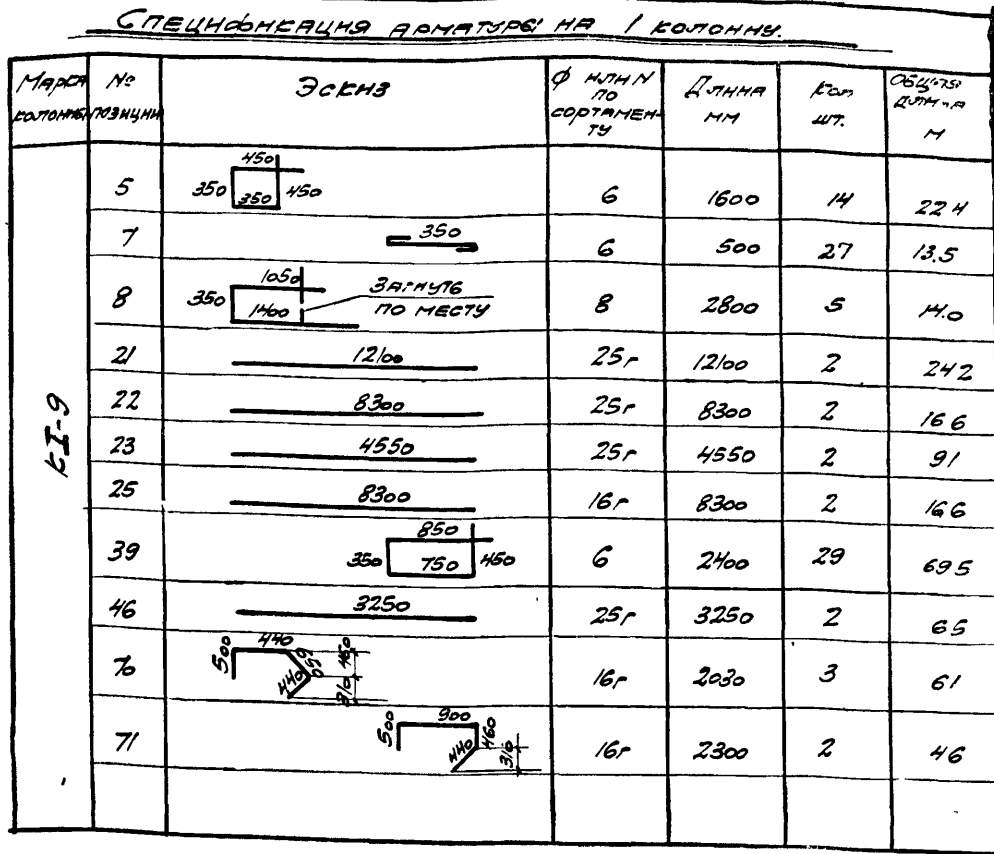 Спецификация арматуры на 1 колонну.
Марка колонны № позиции Эскиз Ф или N по сортаменту Длина мм Кол шт. Общая длина м
КI-9
5 450 350 350 450 6 1600 14 22.4
7 350 6 500 27 13.5
8 1050 350 1400 Загнуть по месту 8 2800 5 14.0
21 12100 25г 12100 2 242
22 8300 25г 8300 2 166
23 4550 25г 4550 2 91
25 8300 16г 8300 2 166
39 850 350 750 450 6 2400 29 695
46 3250 25г 3250 2 65
70 500 440 650 460 440 310 16г 2030 3 61
71 500 900 460 440 310 16г 2300 2 46